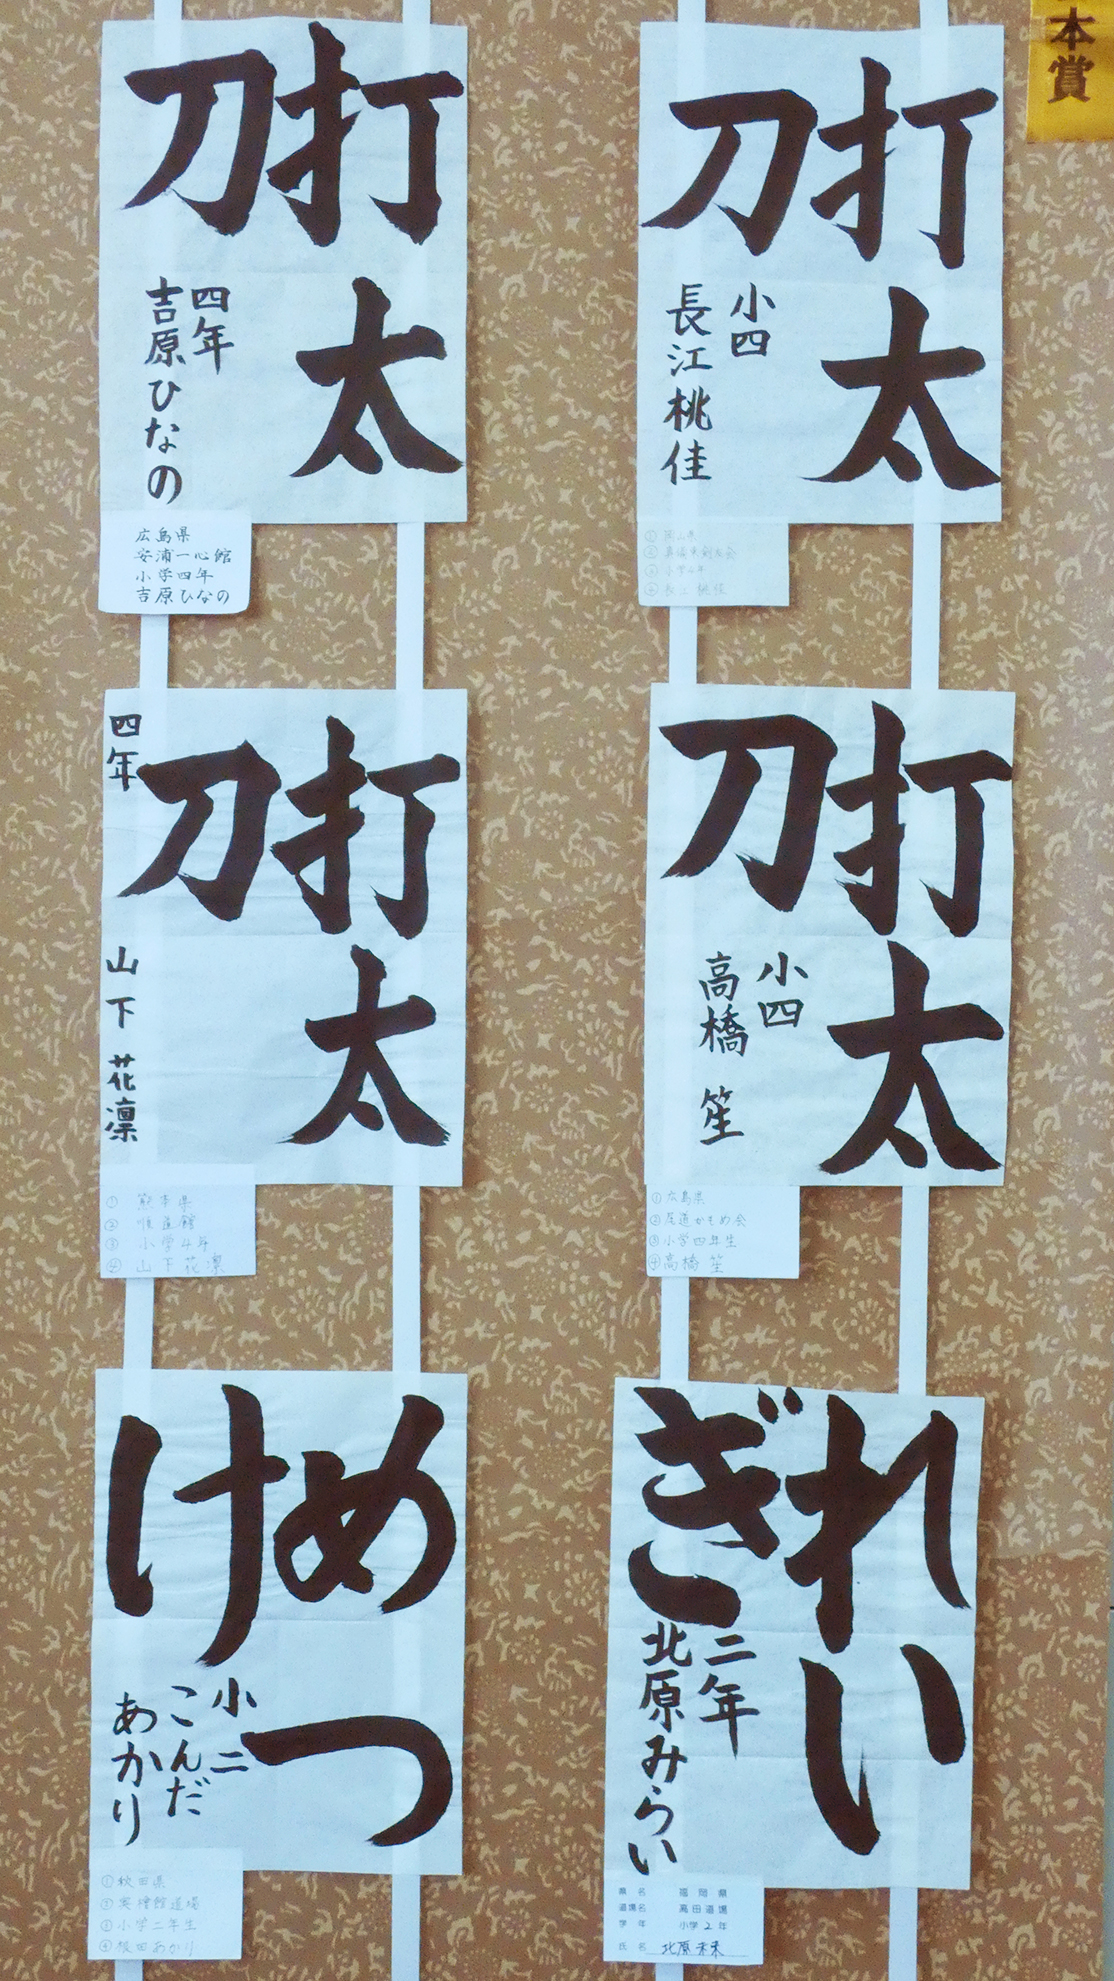 本賞
打太
刀
小四
長江桃佳
小学4年
打太
刀
四年
吉原ひなの
広島県
安浦一心館
小学四年
吉原ひなの
打太
刀
小四
高橋 笙
①広島県
②尾道かもめ会
③小学四年生
④高橋 笙
打太
刀
四年 山下花凛
① 熊本県
③ 小学4年
④ 山下花凛
れい
ぎ
二年
北原みらい
県名 福岡県
道場名 高田道場
学年 小学2年
氏名 北原未来
めつ
け
小二
こんだ
あかり
①秋田県
③小学二年生